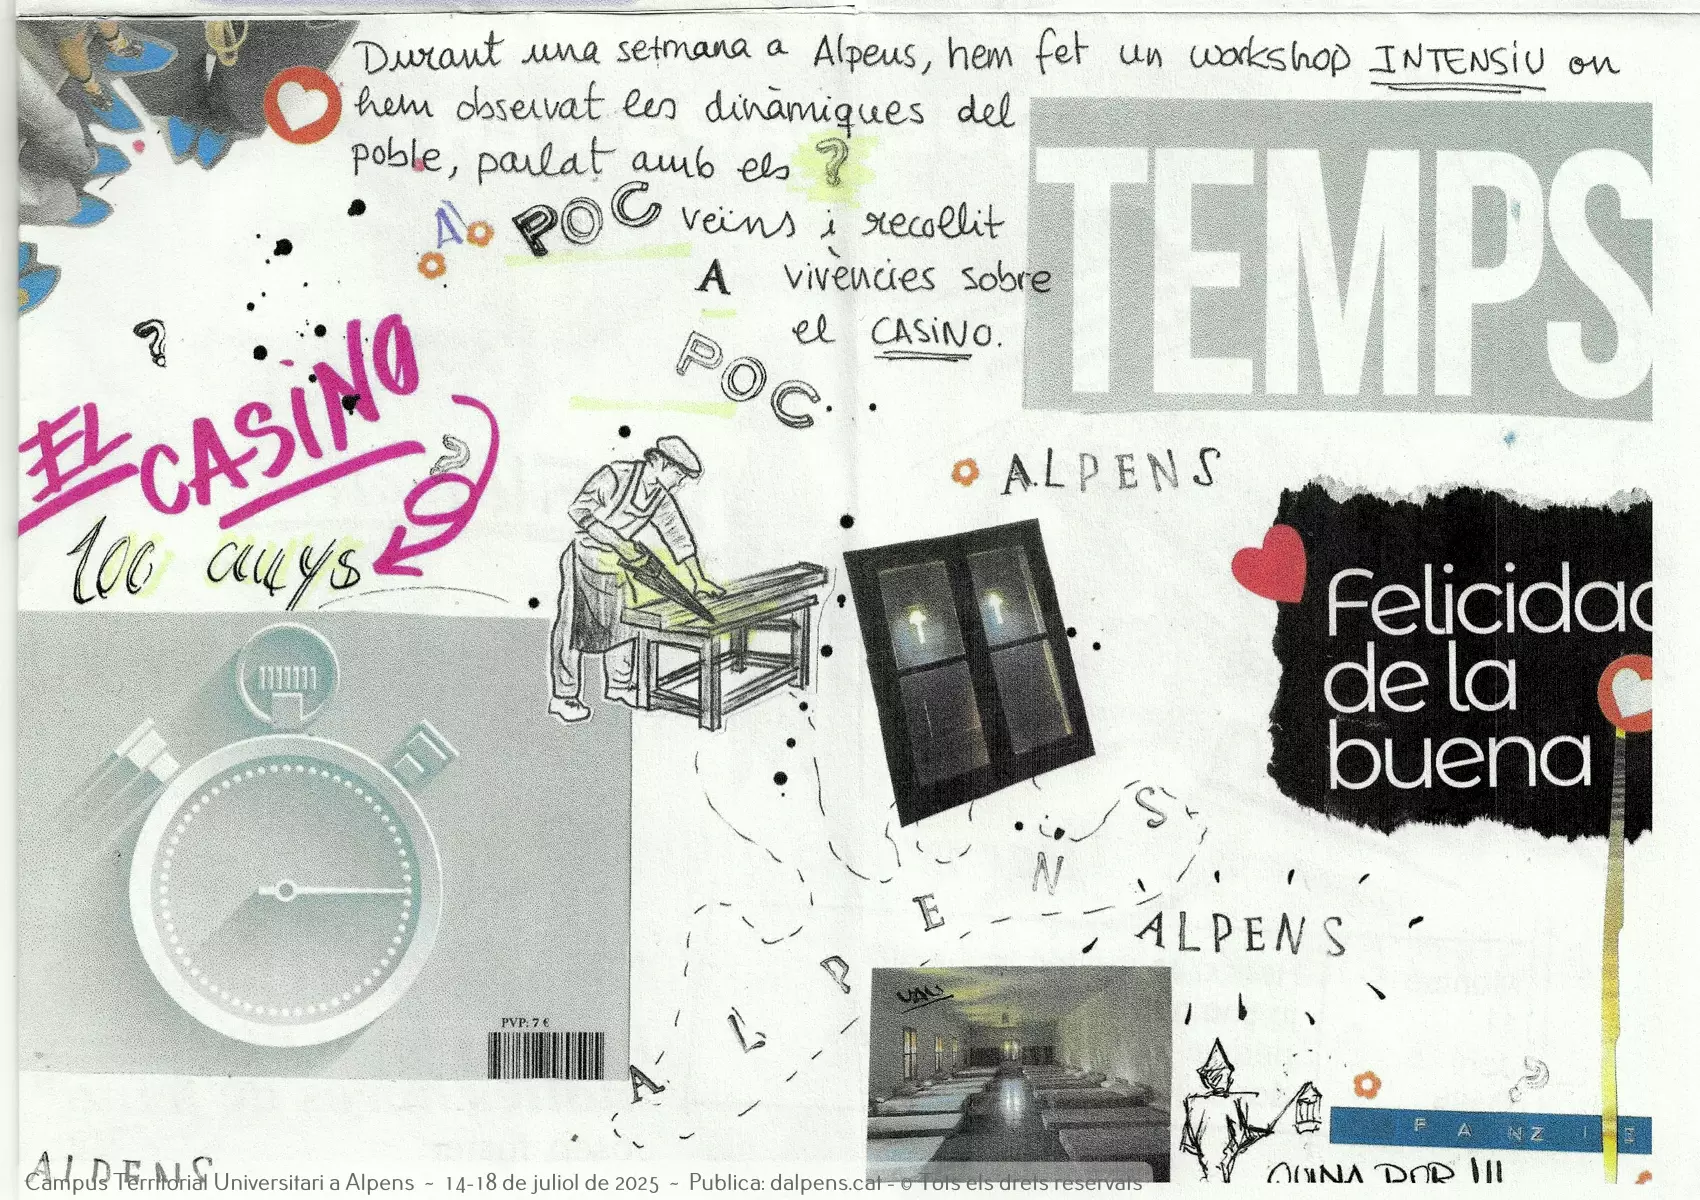 Durant una setmana a Alpens, hem fet un workshop INTENSIU on
hem observat les dinàmiques del
poble, parlat amb els ?
A POC veïns i recollit
A vivències sobre
POC el CASINO.
TEMPS
?
EL
CASINO
?
100 anys
ALPENS
Felicidad
de la
buena
PVP: 7 €
ALPENS
ALPENS
UAU
?
FANZINE
QUINA POR!!!
ALPENS
Campus Territorial Universitari a Alpens ~ 14-18 de juliol de 2025 ~ Publica: dalpens.cat - © Tots els drets reservats